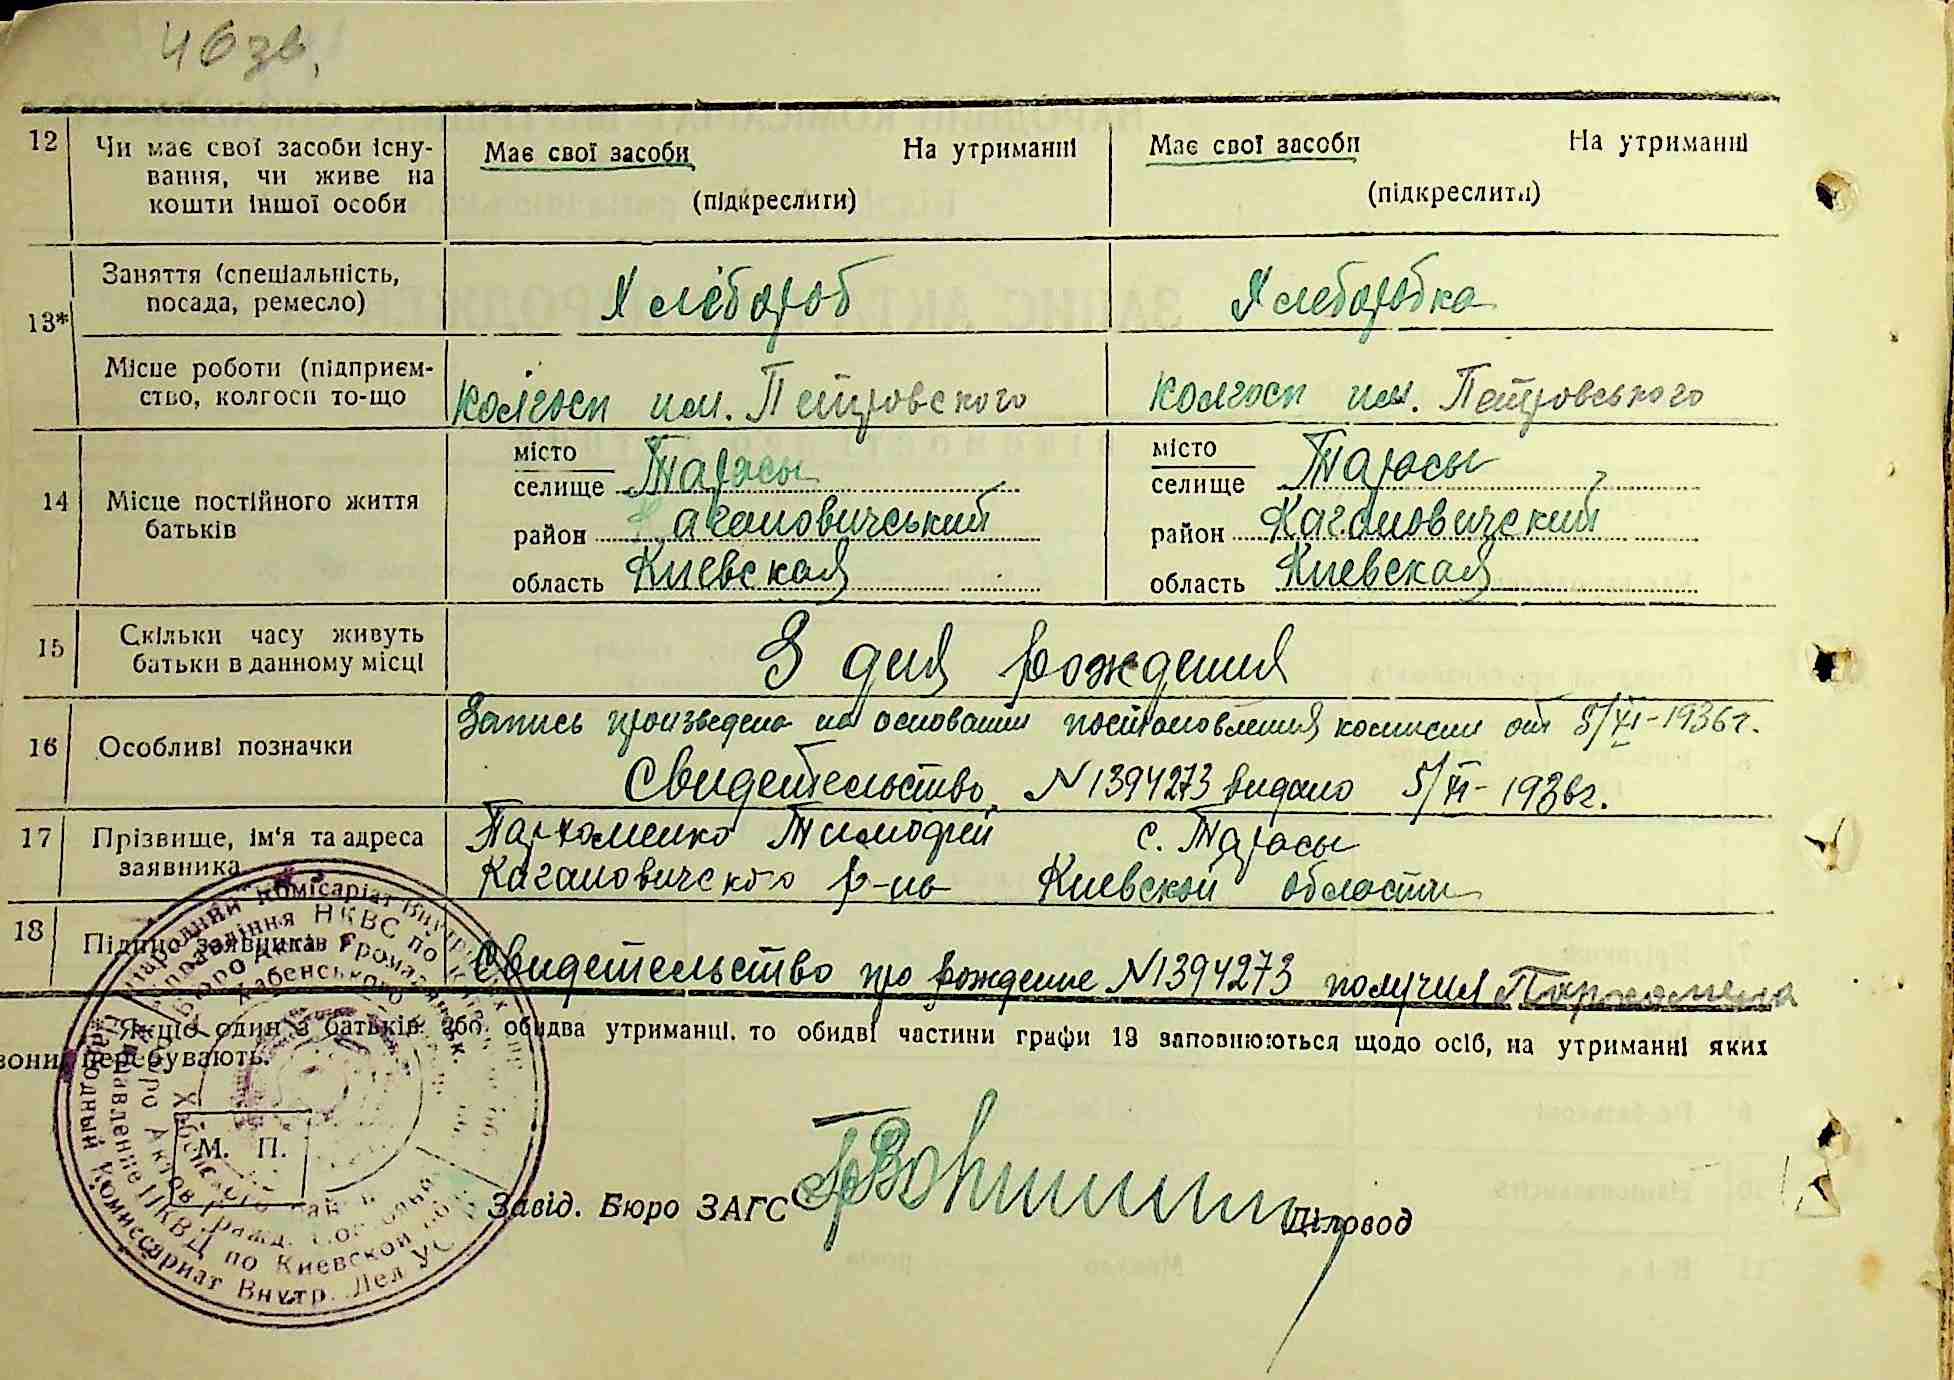 46 зв.
12 Чи має свої засоби існу-
вання, чи живе на
кошти іншої особи
Має свої засоби На утриманні
(підкреслити)
Має свої засоби На утриманні
(підкреслити)
13*
Заняття (спеціальність,
посада, ремесло)
Хлебороб
Хлеборобка
Місце роботи (підприєм-
ство, колгосп то-що
колгосп им. Петровского
колгосп им. Петровського
14 Місце постійного життя
батьків
місто
селище Тарасы
район Кагановичський
область Киевская
місто
селище Тарасы
район Кагановичский
область Киевская
15 Скільки часу живуть
батьки в данному місці
З дня рождения
16 Особливі позначки
Запись произведена на основании постановления комиссии от 5/XI-1936 г.
Свидетельство N 1394273 видано 5/XI-1936 г.
17 Прізвище, ім'я та адреса
заявника
Пархоменко Тимофей с. Тарасы
Кагановичского р-на Киевской области
18 Підпис заявників
Свидетельство про рождение N 1394273 получил
Якщо один з батьків, або обидва утриманці, то обидві частини графи 13 заповнюються щодо осіб, на утриманні яких
вони перебувають.
М. П.
Завід. Бюро ЗАГС
Діловод
Народний Комісаріат Внутрішніх
Управління НКВС по
Бюро Актів Громадянськ.
Хабенського
Народный Комиссариат Внутр. Дел УС
Управление НКВД по Киевской обл.
Бюро Актов Гражд.
Хабенского